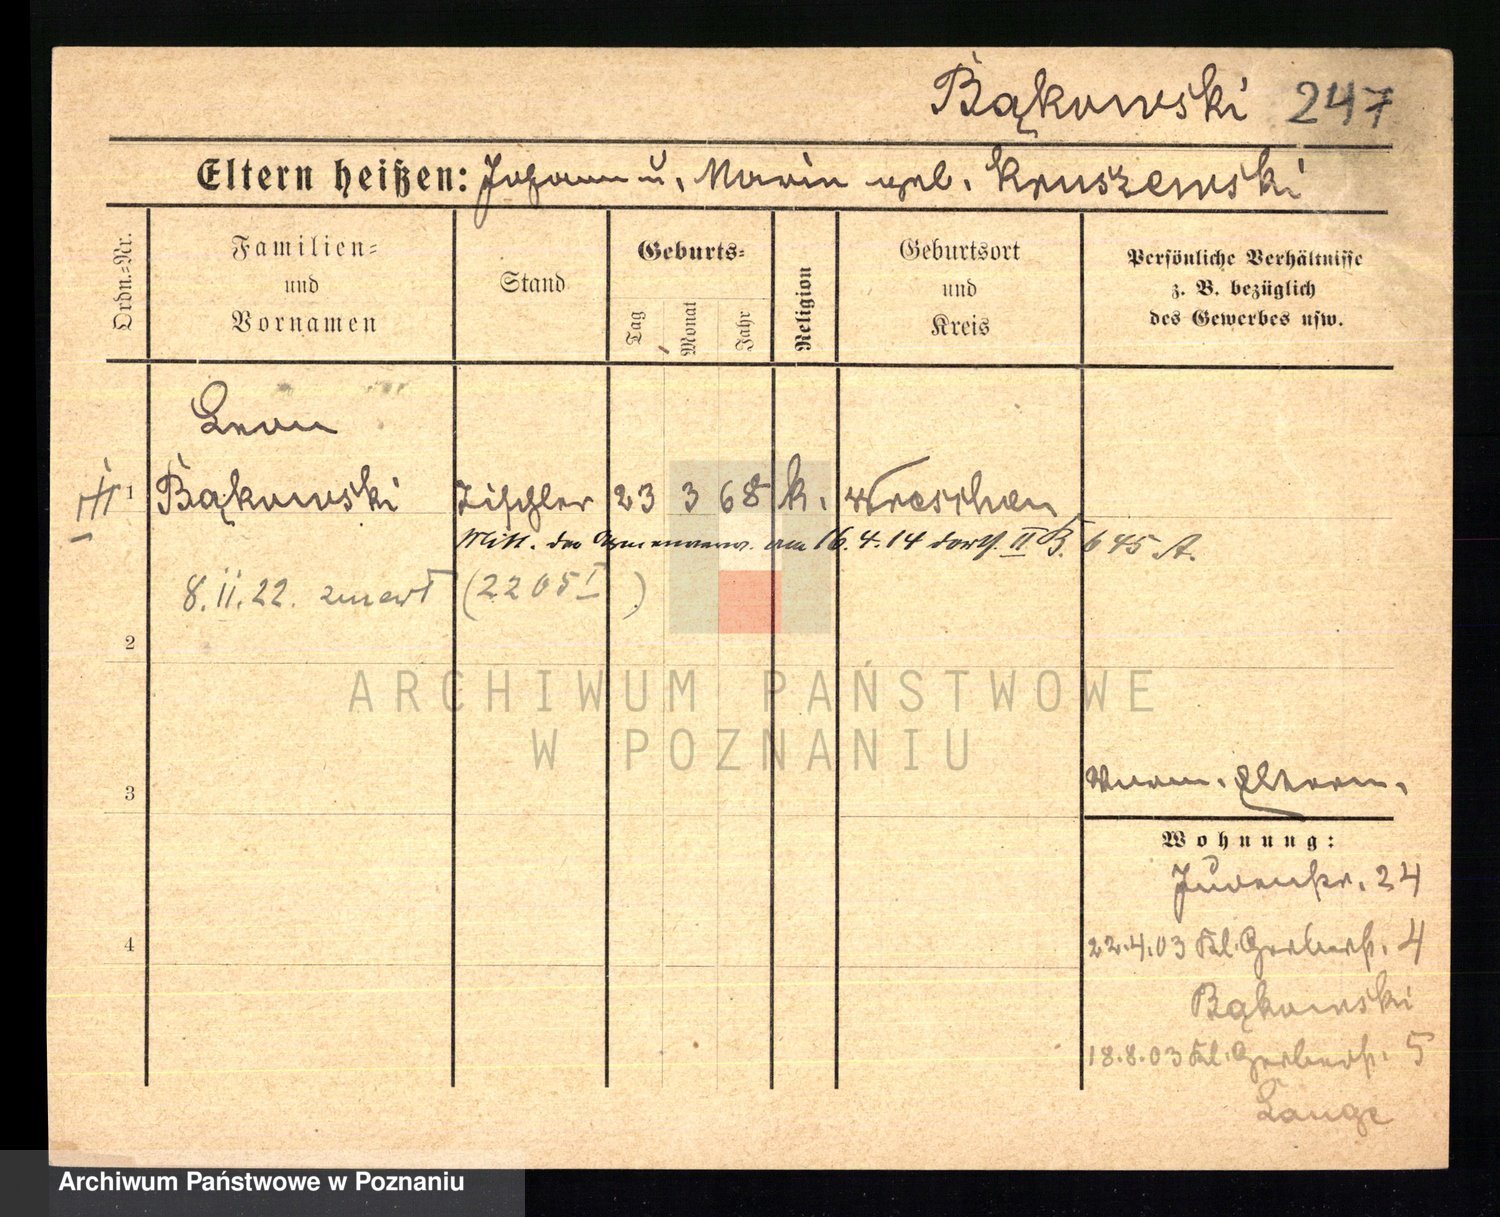 Bąkowski 247
Eltern heißen: Johann u. Marie geb. Kruszewski
Ordn.-Nr.
Familien-
und
Vornamen
Stand
Geburts-
Tag
Monat
Jahr
Religion
Geburtsort
und
Kreis
Persönliche Verhältnisse
z. B. bezüglich
des Gewerbes usw.
Leon
1 Bąkowski Tischler 23 3 68 k. Wreschen
Mitt. der am 16.4.14 II B. 645 A.
8.II.22. zmarł (2205 I)
2
ARCHIWUM PAŃSTWOWE
W POZNANIU
3
Eltern.
Wohnung:
Judenstr. 24
4
22.4.03 Kl. Gerberstr. 4
Bąkowski
18.8.03 Kl. Gerberstr. 5
Lange
Archiwum Państwowe w Poznaniu